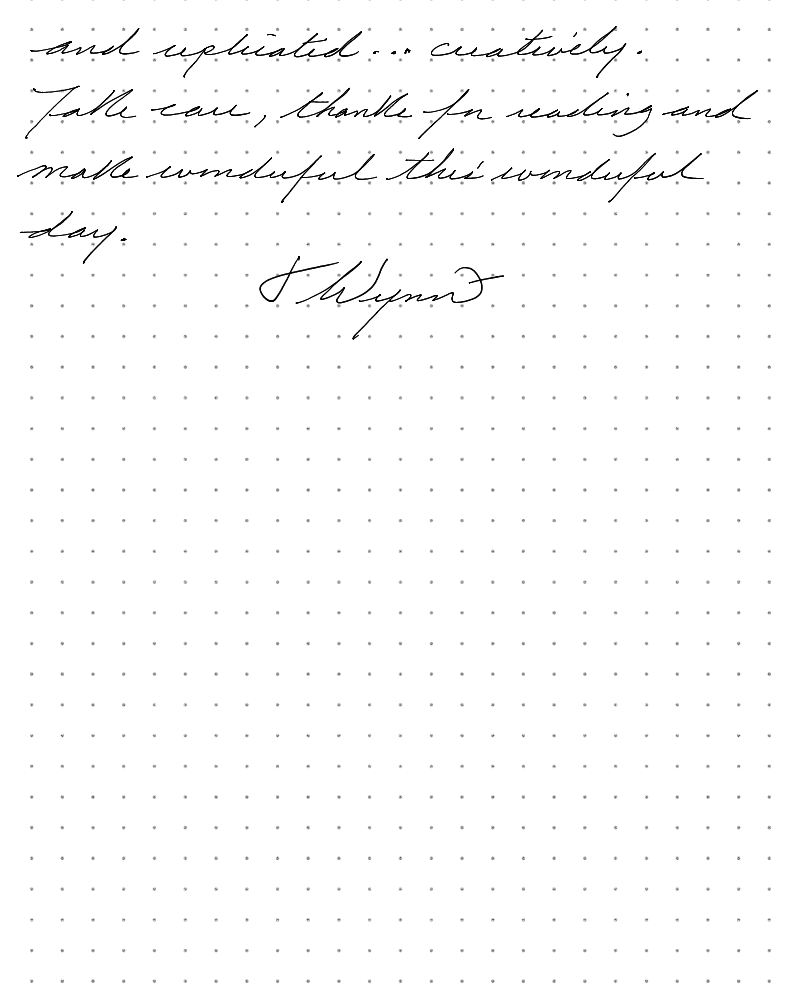 and replicated... creatively.
Take care, thanks for reading and
make wonderful this wonderful
day.
Wynn